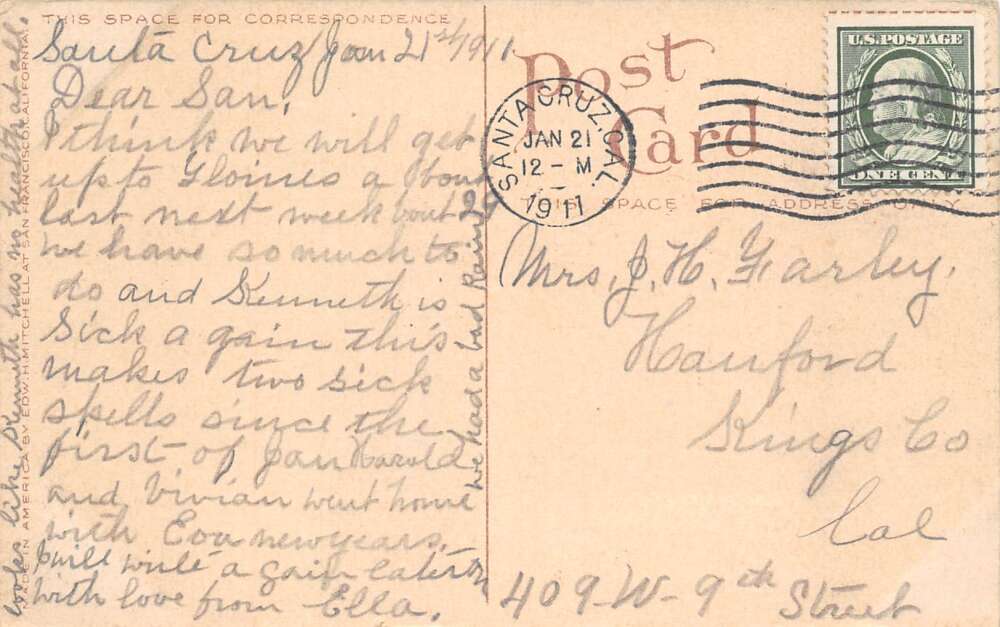 THIS SPACE FOR CORRESPONDENCE
Santa Cruz Jan 21st 1911
Dear San,
I think we will get
up to Gloines a bout
last next week bout 29
we have so much to
do and Kenneth is
sick a gain this
makes two sick
spells since the
first of Jan Harold
and Vivian went home
with Eva newyears.
I will write a gain later on
with love from Ella.
we had a bad Rain
looks like Kenneth has no health at all.
MADE IN AMERICA BY EDW. H. MITCHELL AT SAN FRANCISCO, CALIFORNIA.
Post
Card
THIS SPACE FOR ADDRESS ONLY
SANTA CRUZ, CAL.
JAN 21
12 - M
1911
U.S. POSTAGE
ONE CENT
Mrs. J. H. Farley,
Hanford
Kings Co
Cal
409-W-9th Street